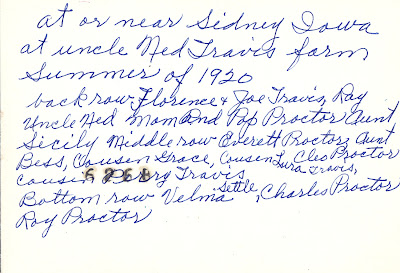 at or near Sidney Iowa
at uncle Ned Travis farm
Summer of 1920
back row Florence & Joe Travis, Ray
Uncle Ned Mom and Pop Proctor Aunt
Sicily Middle row Everett Proctor, Aunt
Bess, Cousin Grace, Cousin Cleo Proctor
Lura Travis,
Cousin Travis
6268
Bottom row Velma Settle, Charles Proctor
Roy Proctor